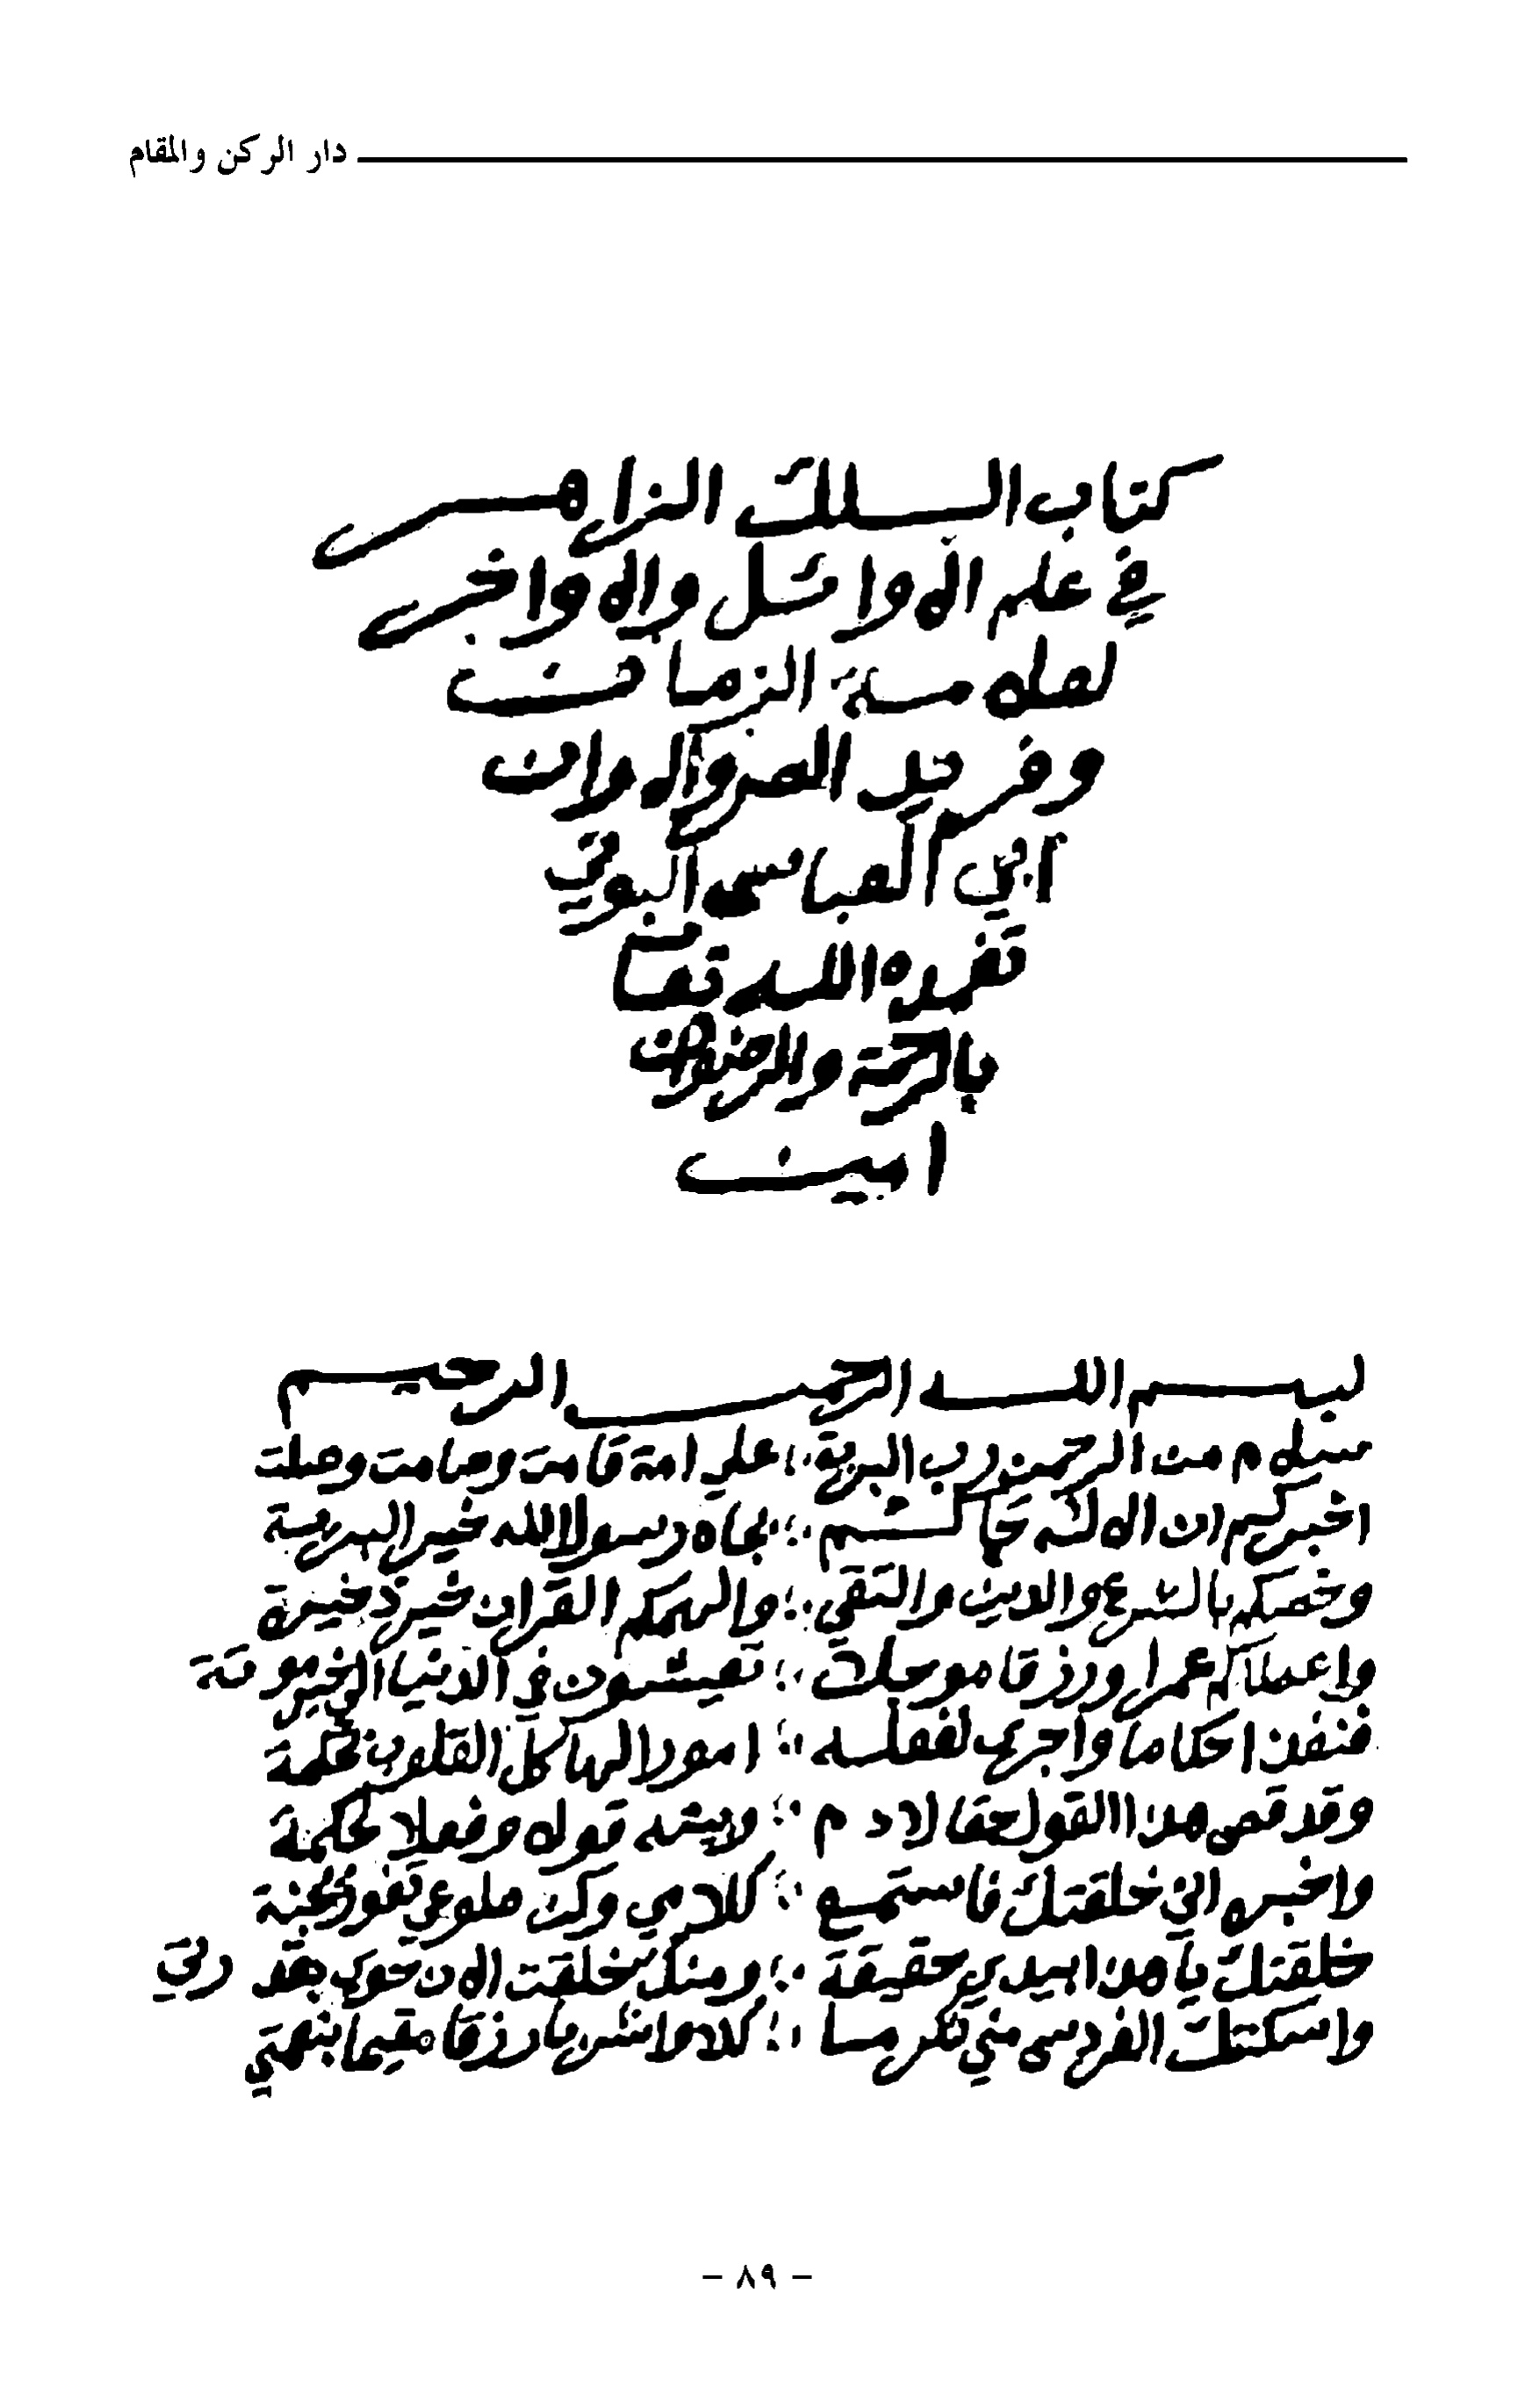 دار الركن والمقام
كتاب السلك الزاهر
في علم الاوائل والاواخر
لعلامة الزمان
وفريد العصر والاوان
ابي العباس البوني
تغمده الله تعا
بالرحمة والرضوان
امين
بسم الله الرحمن الرحيم
سلام من الرحمن رب البرية ؛ على امة قامت وصامت وصلت
اخبركم ان الاله حاكم ؛ بجاه رسول الله خير البرية
وخصكم بالشرع والدين والتقى ؛ والهمكم القران خير ذخيرة
واعطاكم عمرا ورزقا ؛ تعيشون في الدنيا
فنفذ احكاما واجرى لفعله ؛ امورا لها كل القلوب
وقد قص هذا القول حقا لادم ؛ قوله وفعلا
واخبره اني خلقتك فاستمع ؛ كلامي وكن
خلقتك يا هذا بيدي حقيقة ؛ ومنك خلقت الان حوى
واسكنتك الفردوس مني تكرما ؛ كلا واشربا رزقا
- ٨٩ -